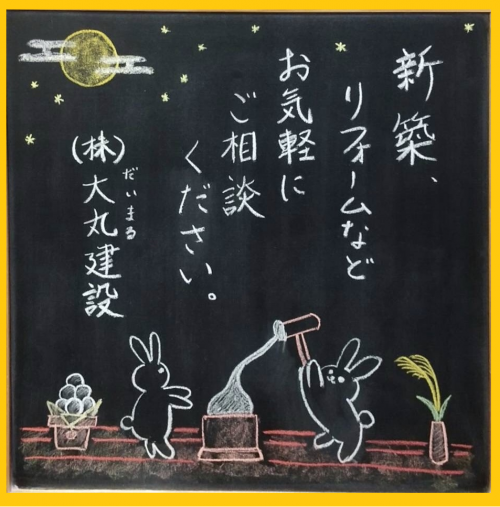 新築、
リフォームなど
お気軽に
ご相談
ください。
(株)大丸建設
だいまる